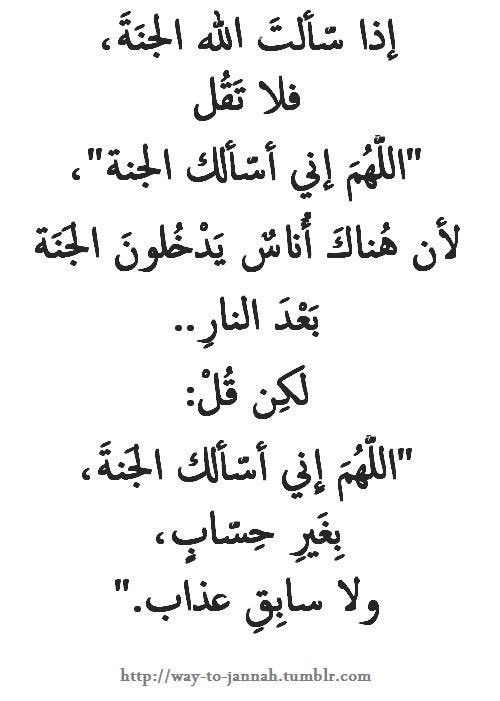 إذا سّألتَ الله الجنَةَ،
فلا تَقُل
"اللَّهُمَ إني أسّألك الجنة"،
لأن هُناكَ أُناسٌ يَدْخُلونَ الجَنَة
بَعْدَ النارِ..
لَكِن قُلْ:
"اللَّهُمَ إِني أسّألك الجَنةَ،
بِغَيرِ حِسّابٍ،
ولا سابِقِ عذاب."
http://way-to-jannah.tumblr.com